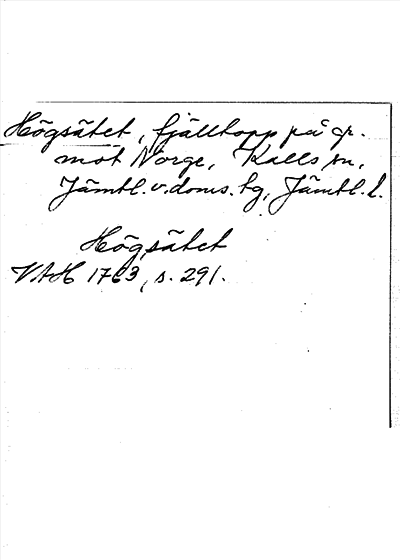 Högsätet, fjälltopp på gr.
mot Norge, Kalls sn,
Jämtl. v. doms. tg, Jämtl. l.
Högsätet
VAH 1763, s. 291.